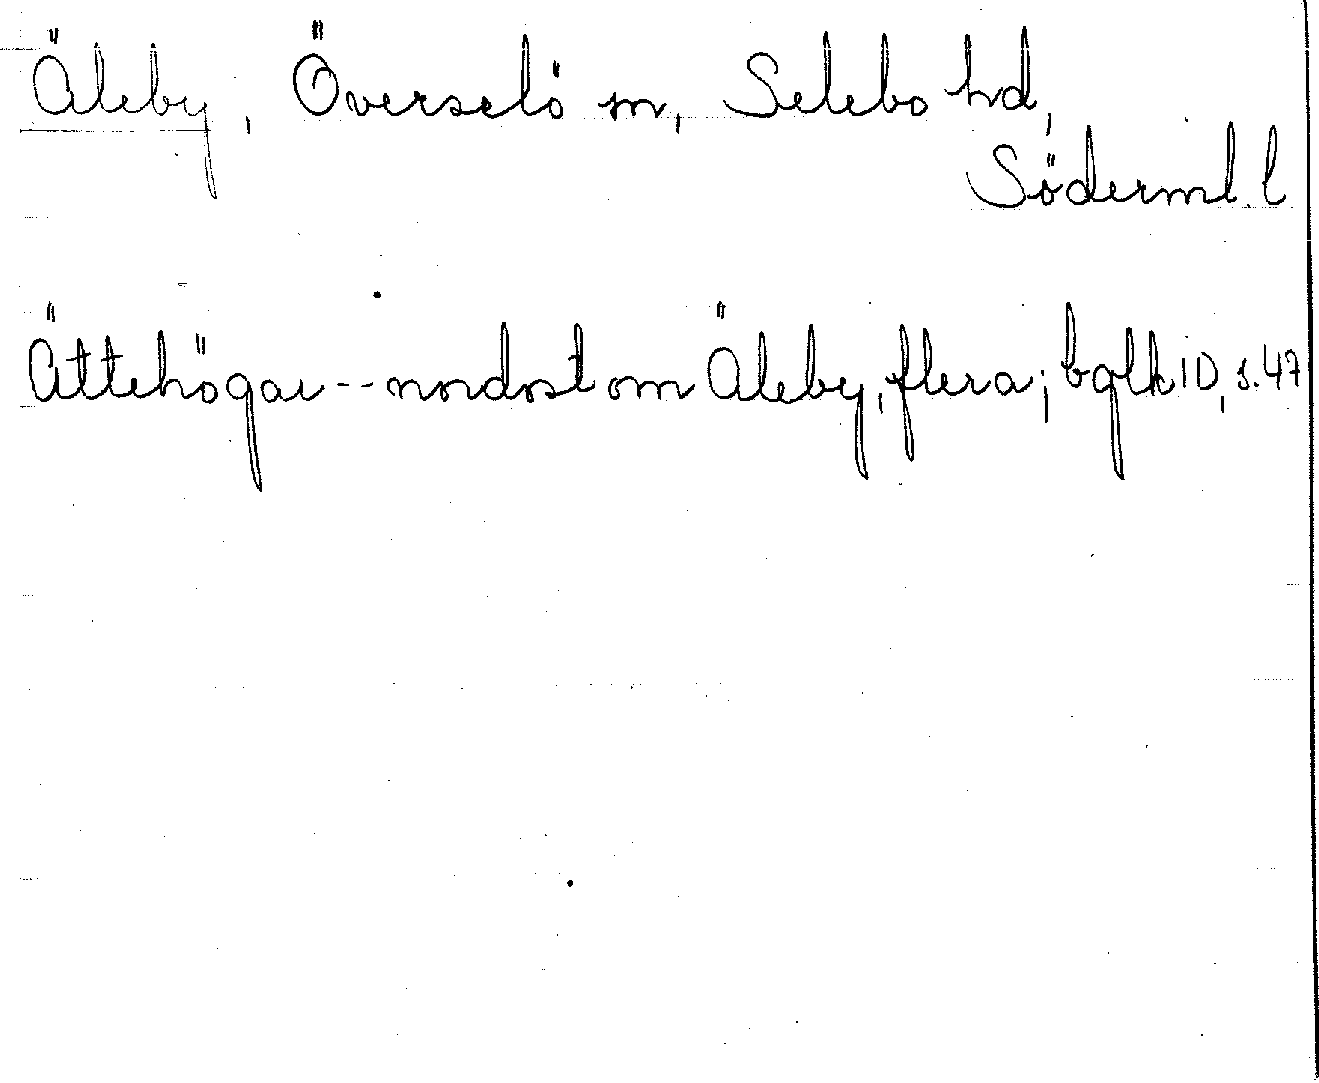 Äleby, Överselö sn, Selebo hd,
Söderml. l
Ättehögar -- nordost om Äleby, flera; bglk ID, s. 47